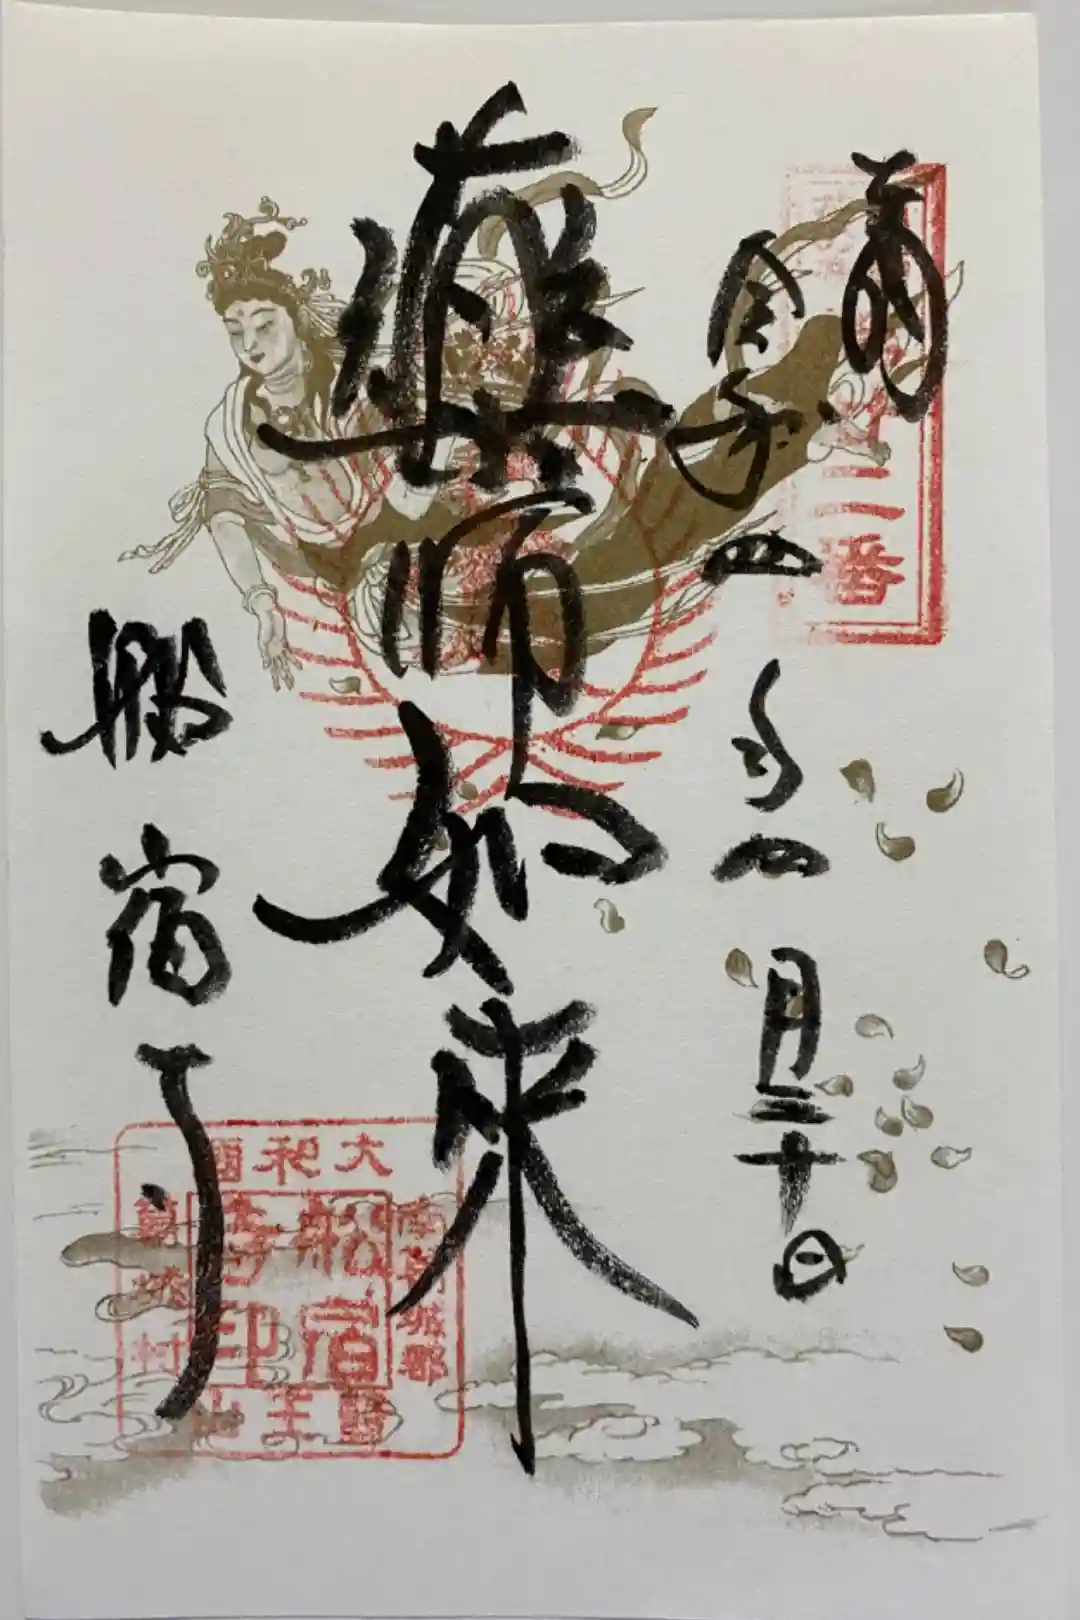 奉拝
令和四年四月二十日
薬師如来
船宿寺
二番
大和國
南葛城郡
葛城村
醫王山
船宿
寺印